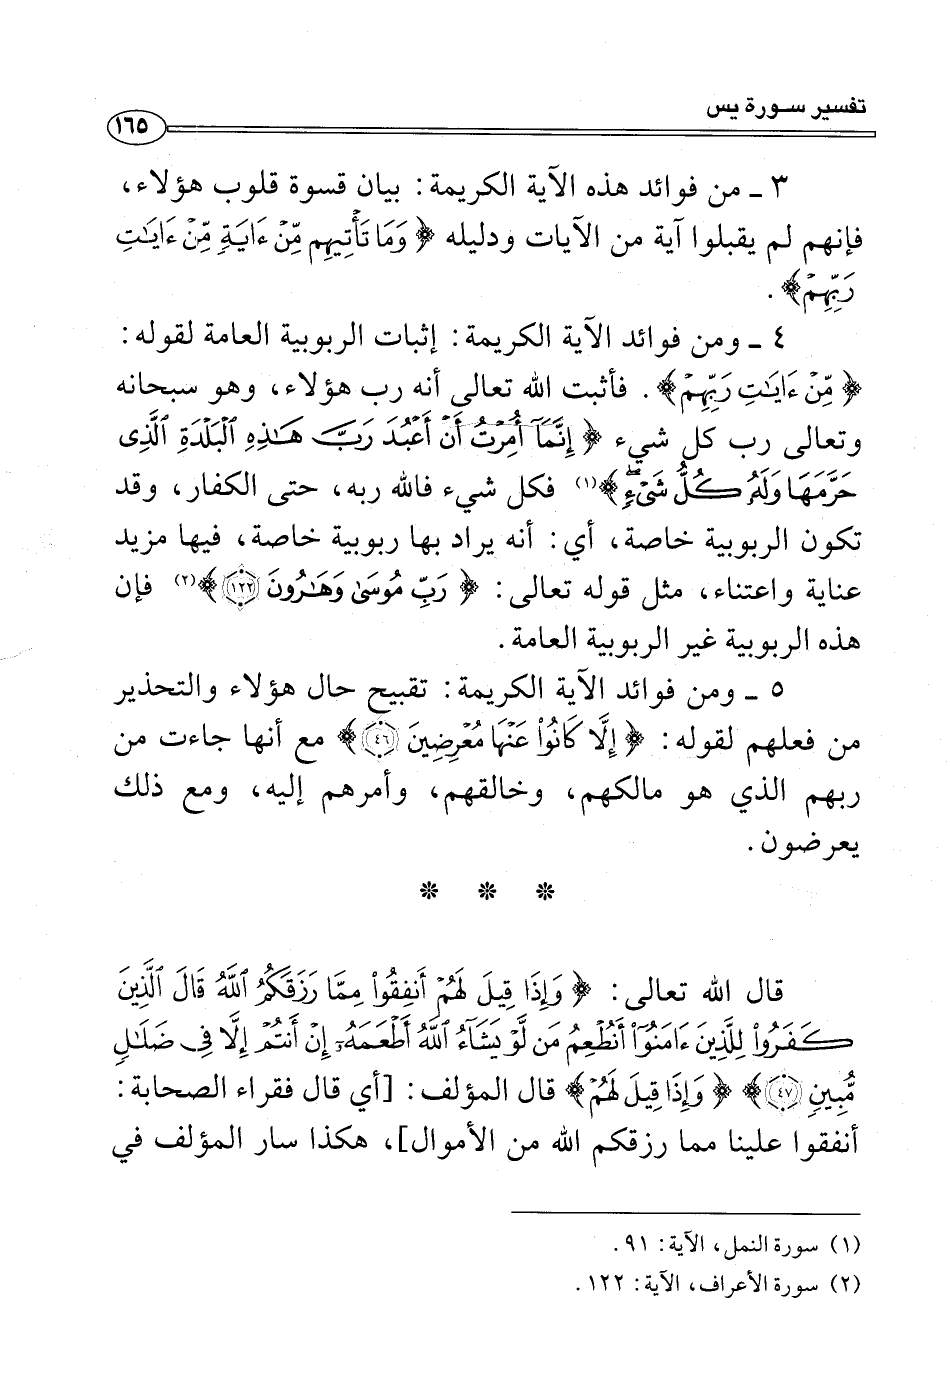 تفسير سورة يس
١٦٥
٣ ـ من فوائد هذه الآية الكريمة: بيان قسوة قلوب هؤلاء،
فإنهم لم يقبلوا آية من الآيات ودليله ﴿ وَمَا تَأْتِيهِم مِّنْ ءَايَةٍ مِّنْ ءَايَٰتِ
رَبِّهِمْ﴾ .
٤ ـ ومن فوائد الآية الكريمة: إثبات الربوبية العامة لقوله:
﴿ مِّنْ ءَايَٰتِ رَبِّهِمْ﴾ . فأثبت الله تعالى أنه رب هؤلاء، وهو سبحانه
وتعالى رب كل شيء ﴿ إِنَّمَآ أُمِرْتُ أَنْ أَعْبُدَ رَبَّ هَٰذِهِ ٱلْبَلْدَةِ ٱلَّذِى
حَرَّمَهَا وَلَهُۥ كُلُّ شَىْءٍۖ﴾(١) فكل شيء فالله ربه، حتى الكفار، وقد
تكون الربوبية خاصة، أي: أنه يراد بها ربوبية خاصة، فيها مزيد
عناية واعتناء، مثل قوله تعالى: ﴿ رَبِّ مُوسَىٰ وَهَٰرُونَ ١٢٢﴾(٢) فإن
هذه الربوبية غير الربوبية العامة.
٥ ـ ومن فوائد الآية الكريمة: تقبيح حال هؤلاء والتحذير
من فعلهم لقوله: ﴿ إِلَّا كَانُوا۟ عَنْهَا مُعْرِضِينَ ٤٦﴾ مع أنها جاءت من
ربهم الذي هو مالكهم، وخالقهم، وأمرهم إليه، ومع ذلك
يعرضون.
* * *
قال الله تعالى: ﴿ وَإِذَا قِيلَ لَهُمْ أَنفِقُوا۟ مِمَّا رَزَقَكُمُ ٱللَّهُ قَالَ ٱلَّذِينَ
كَفَرُوا۟ لِلَّذِينَ ءَامَنُوٓا۟ أَنُطْعِمُ مَن لَّوْ يَشَآءُ ٱللَّهُ أَطْعَمَهُۥٓ إِنْ أَنتُمْ إِلَّا فِى ضَلَٰلٍ
مُّبِينٍ ٤٧﴾ ﴿ وَإِذَا قِيلَ لَهُمْ﴾ قال المؤلف: [أي قال فقراء الصحابة:
أنفقوا علينا مما رزقكم الله من الأموال]، هكذا سار المؤلف في
(١) سورة النمل، الآية: ٩١.
(٢) سورة الأعراف، الآية: ١٢٢.